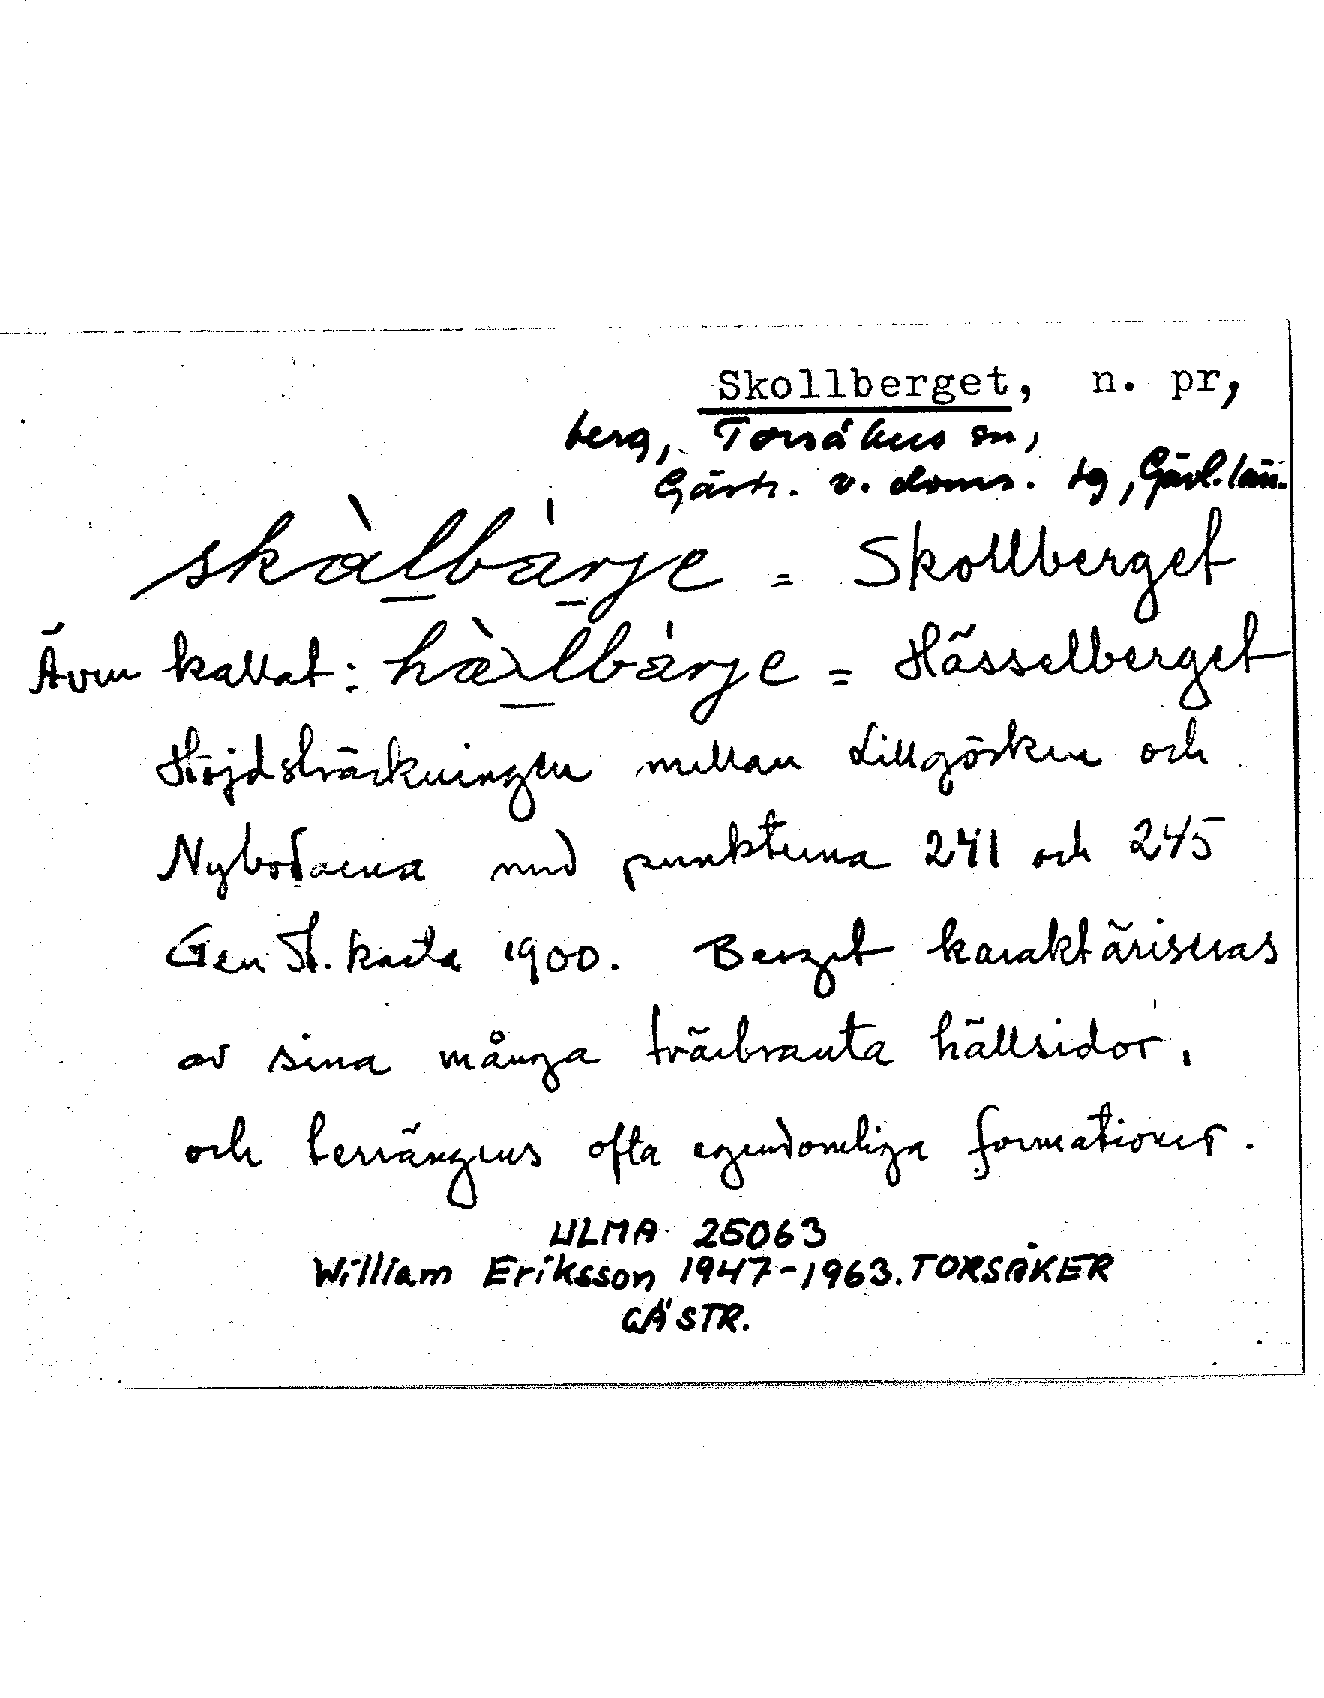 Skollberget, n. pr,
berg, Torsåkers sn,
Gästr. v. doms. tg, Gävl. län.
skàlbàrje = Skollberget
Även kallat: hàlbàrje = Hässelberget
Höjdsträckningen mellan Lillgösken och
Nybodarna med punkterna 241 och 245
Gen St. karta 1900. Berget karaktäriseras
av sina många tvärbranta hällsidor,
och terrängens ofta egendomliga formationer.
ULMA 25063
William Eriksson 1947-1963. TORSÅKER
GÄSTR.